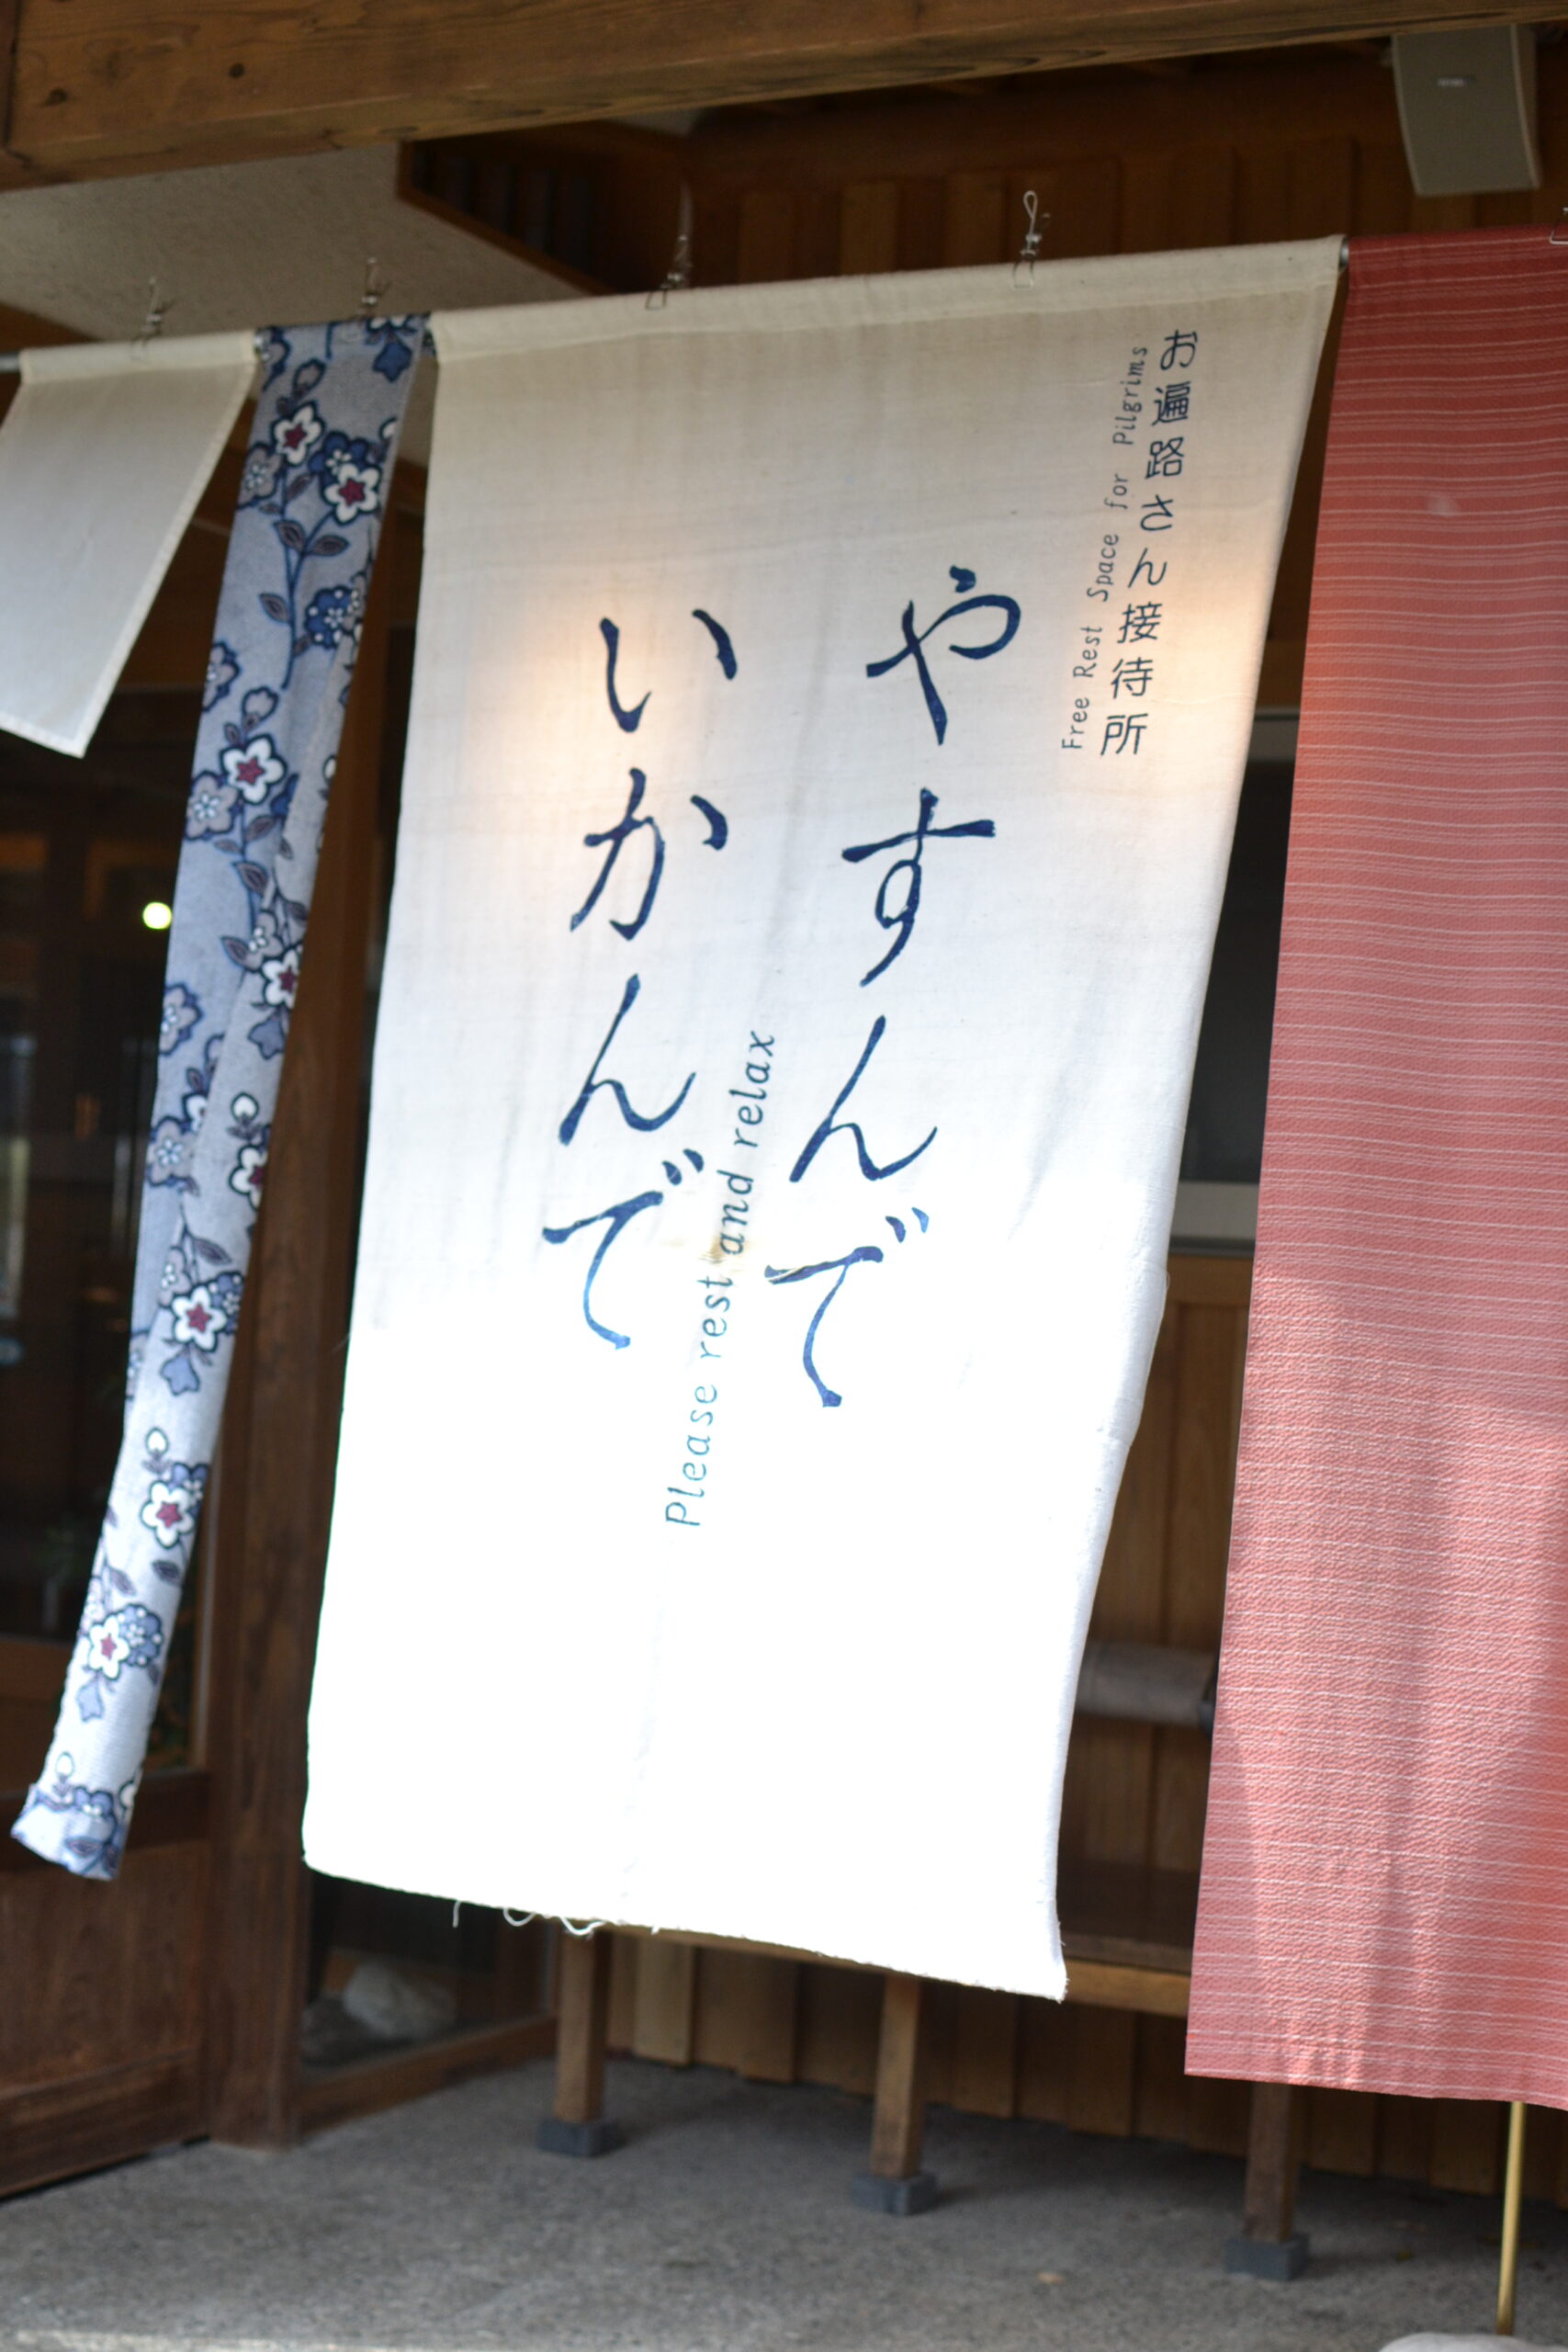 お遍路さん接待所
Free Rest Space for Pilgrims
やすんで
いかんで
Please rest and relax